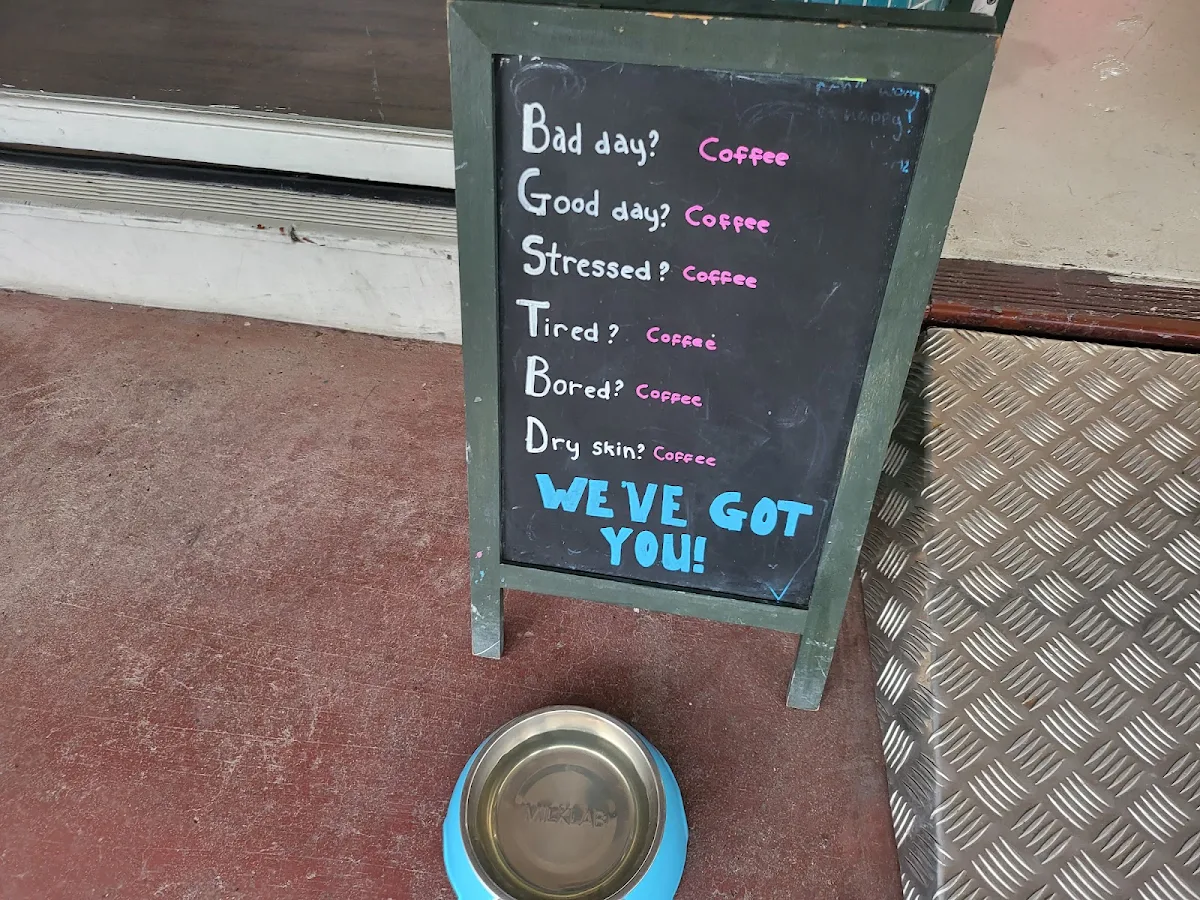 Bad day? Coffee
Good day? Coffee
Stressed? Coffee
Tired? Coffee
Bored? Coffee
Dry skin? Coffee
WE'VE GOT
YOU!
"MILKLAB"